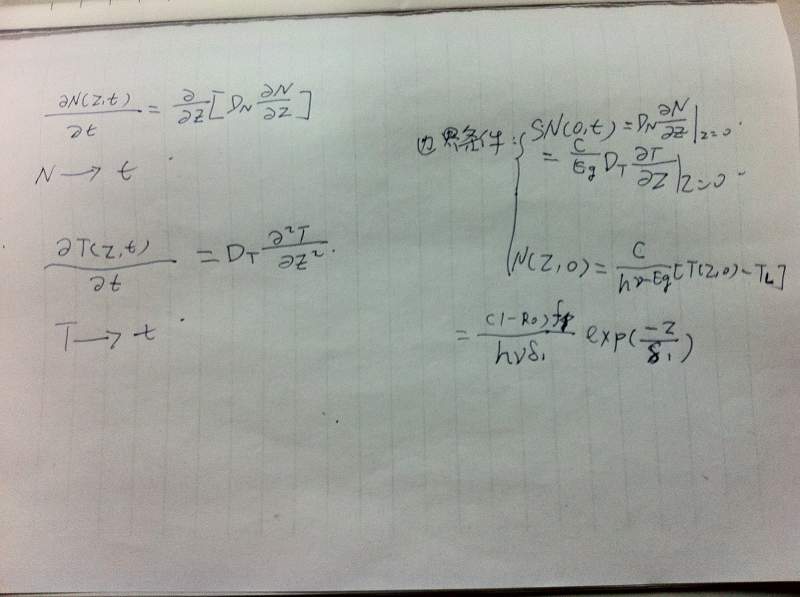 ∂N(Z,t)/∂t = ∂/∂Z [D_N ∂N/∂Z]
N → t
∂T(Z,t)/∂t = D_T ∂²T/∂Z².
T → t
边界条件: { SN(0,t) = D_N ∂N/∂Z |_{Z=0}
= C/Eg D_T ∂T/∂Z |_{Z=0}
N(Z,0) = C/(hν-Eg) [T(Z,0) - T_L]
= (1-R₀)f_p/(hνδ₁) exp(-Z/δ₁)